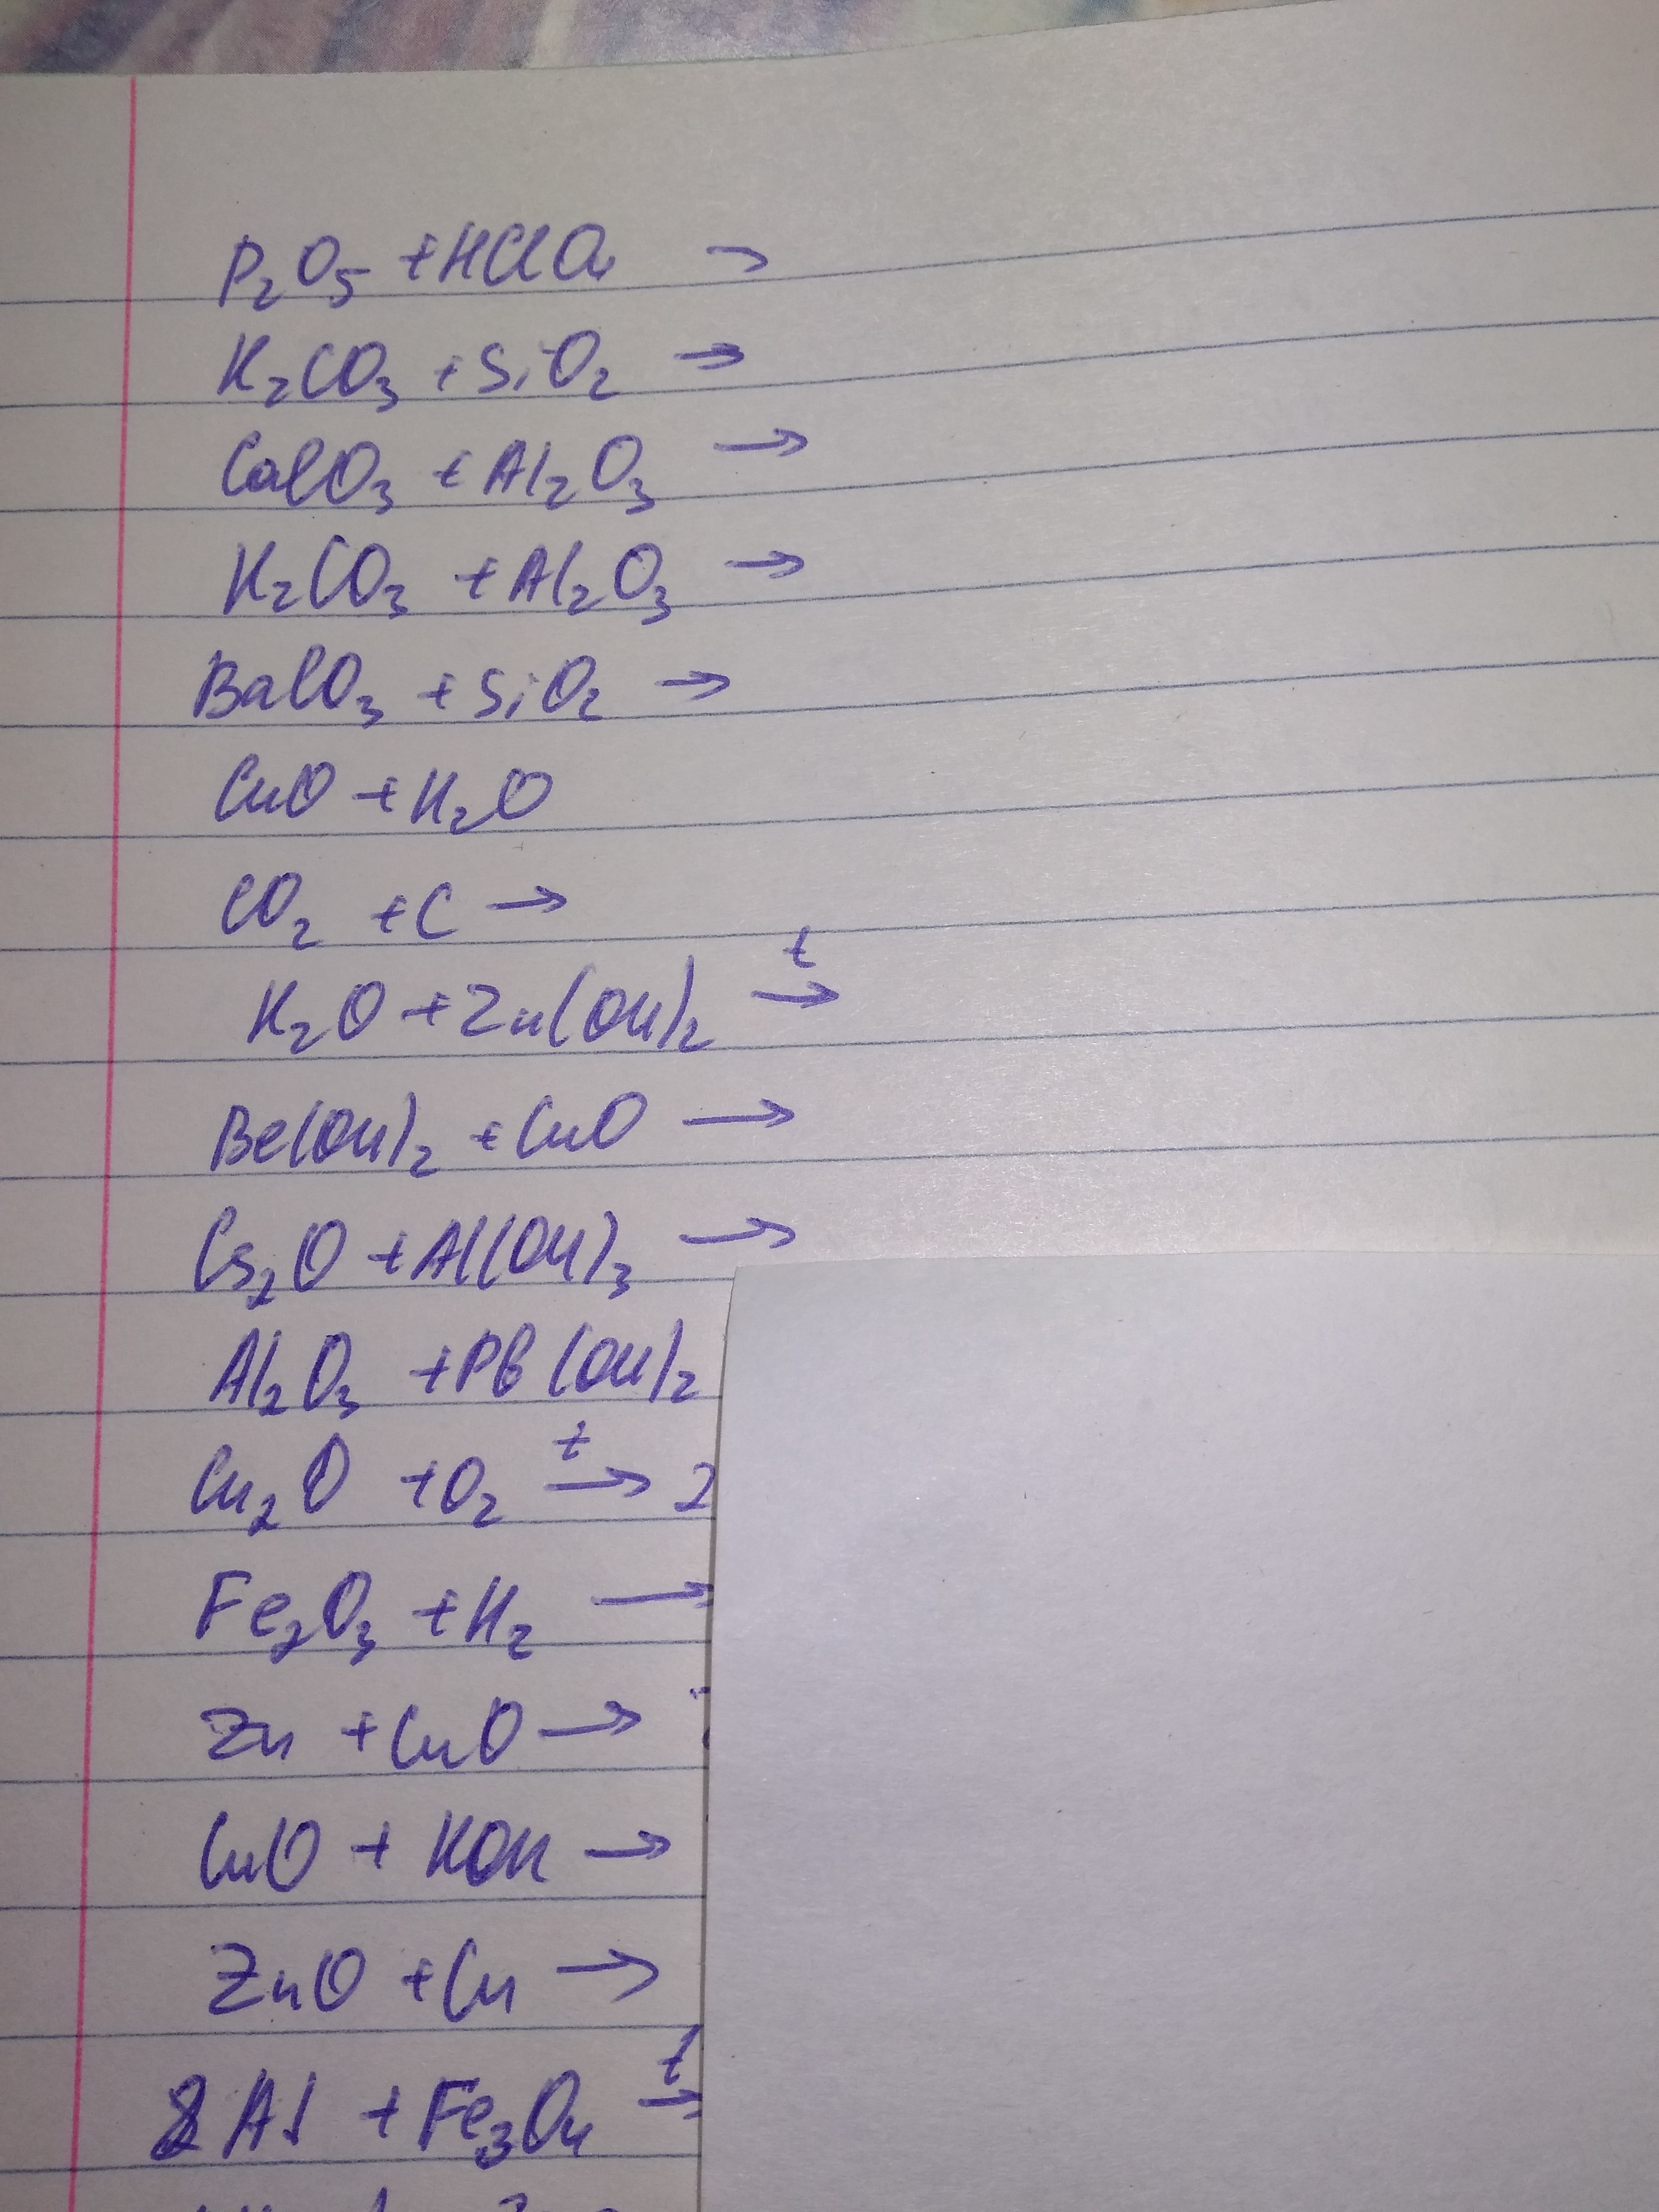 P₂O₅ + HClO₄ →
K₂CO₃ + SiO₂ →
CaCO₃ + Al₂O₃ →
K₂CO₃ + Al₂O₃ →
BaCO₃ + SiO₂ →
CuO + H₂O
CO₂ + C →
K₂O + Zn(OH)₂ t→
Be(OH)₂ + CuO →
Cs₂O + Al(OH)₃ →
Al₂O₃ + Pb(OH)₂
Cu₂O + O₂ t→ 2
Fe₂O₃ + H₂ →
Zn + CuO →
CuO + KOH →
ZnO + Cu →
8Al + Fe₃O₄ t→